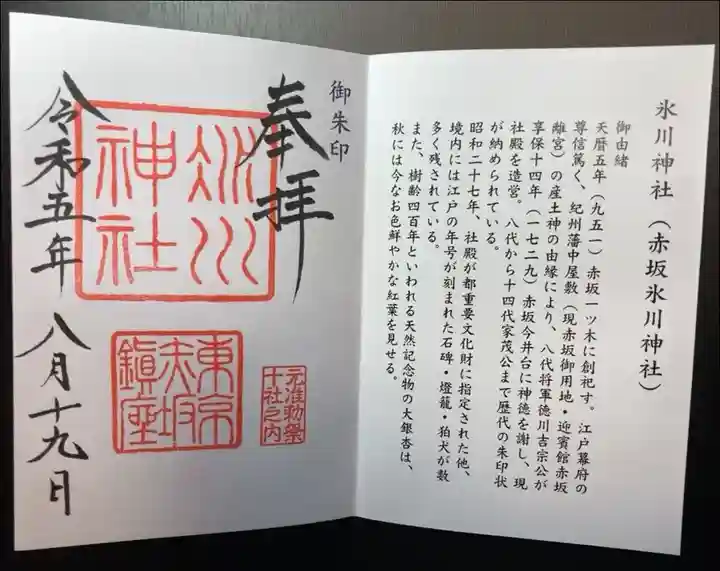 氷川神社（赤坂氷川神社）
御由緒
天暦五年（九五一）赤坂一ツ木に創祀す。江戸幕府の
尊信篤く、紀州藩中屋敷（現赤坂御用地・迎賓館赤坂
離宮）の産土神の由縁により、八代将軍徳川吉宗公が
享保十四年（一七二九）赤坂今井台に神徳を謝し、現
社殿を造営。八代から十四代家茂公まで歴代の朱印状
が納められている。
昭和二十七年、社殿が都重要文化財に指定された他、
境内には江戸の年号が刻まれた石碑・燈籠・狛犬が数
多く残されている。
また、樹齢四百年といわれる天然記念物の大銀杏は、
秋には今なお色鮮やかな紅葉を見せる。
御朱印
奉拝
氷川
神社
元准勅祭
十社之内
東京
赤坂
鎮座
令和五年 八月十九日